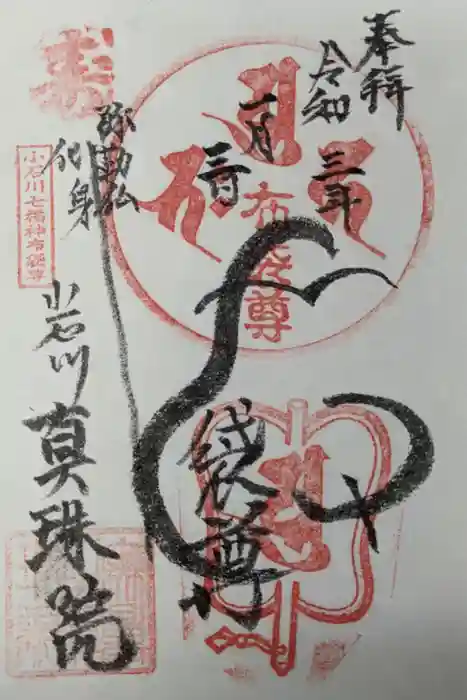 奉拝
令和
三年
一月
三日
布袋尊
袋尊
弥勒仏
化身
小石川七福神布袋尊
小石川
真珠院